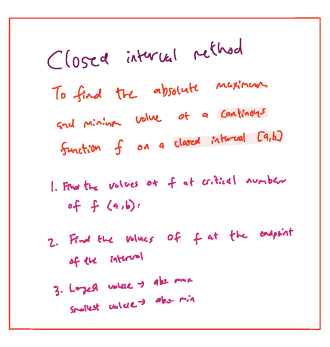 Closed interval method
To find the absolute maximum
and minimum value of a continous
function f on a closed interval [a,b]
1. Find the values of f at critical numbers
of f (a,b).
2. Find the values of f at the endpoint
of the interval
3. Largest value → abs. max
smallest value → abs. min